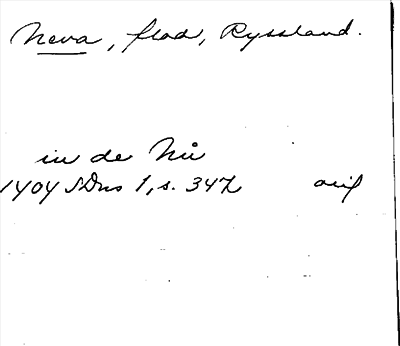 Neva, flod, Ryssland.
in de Nů
1404 SDns 1, s. 347 orig